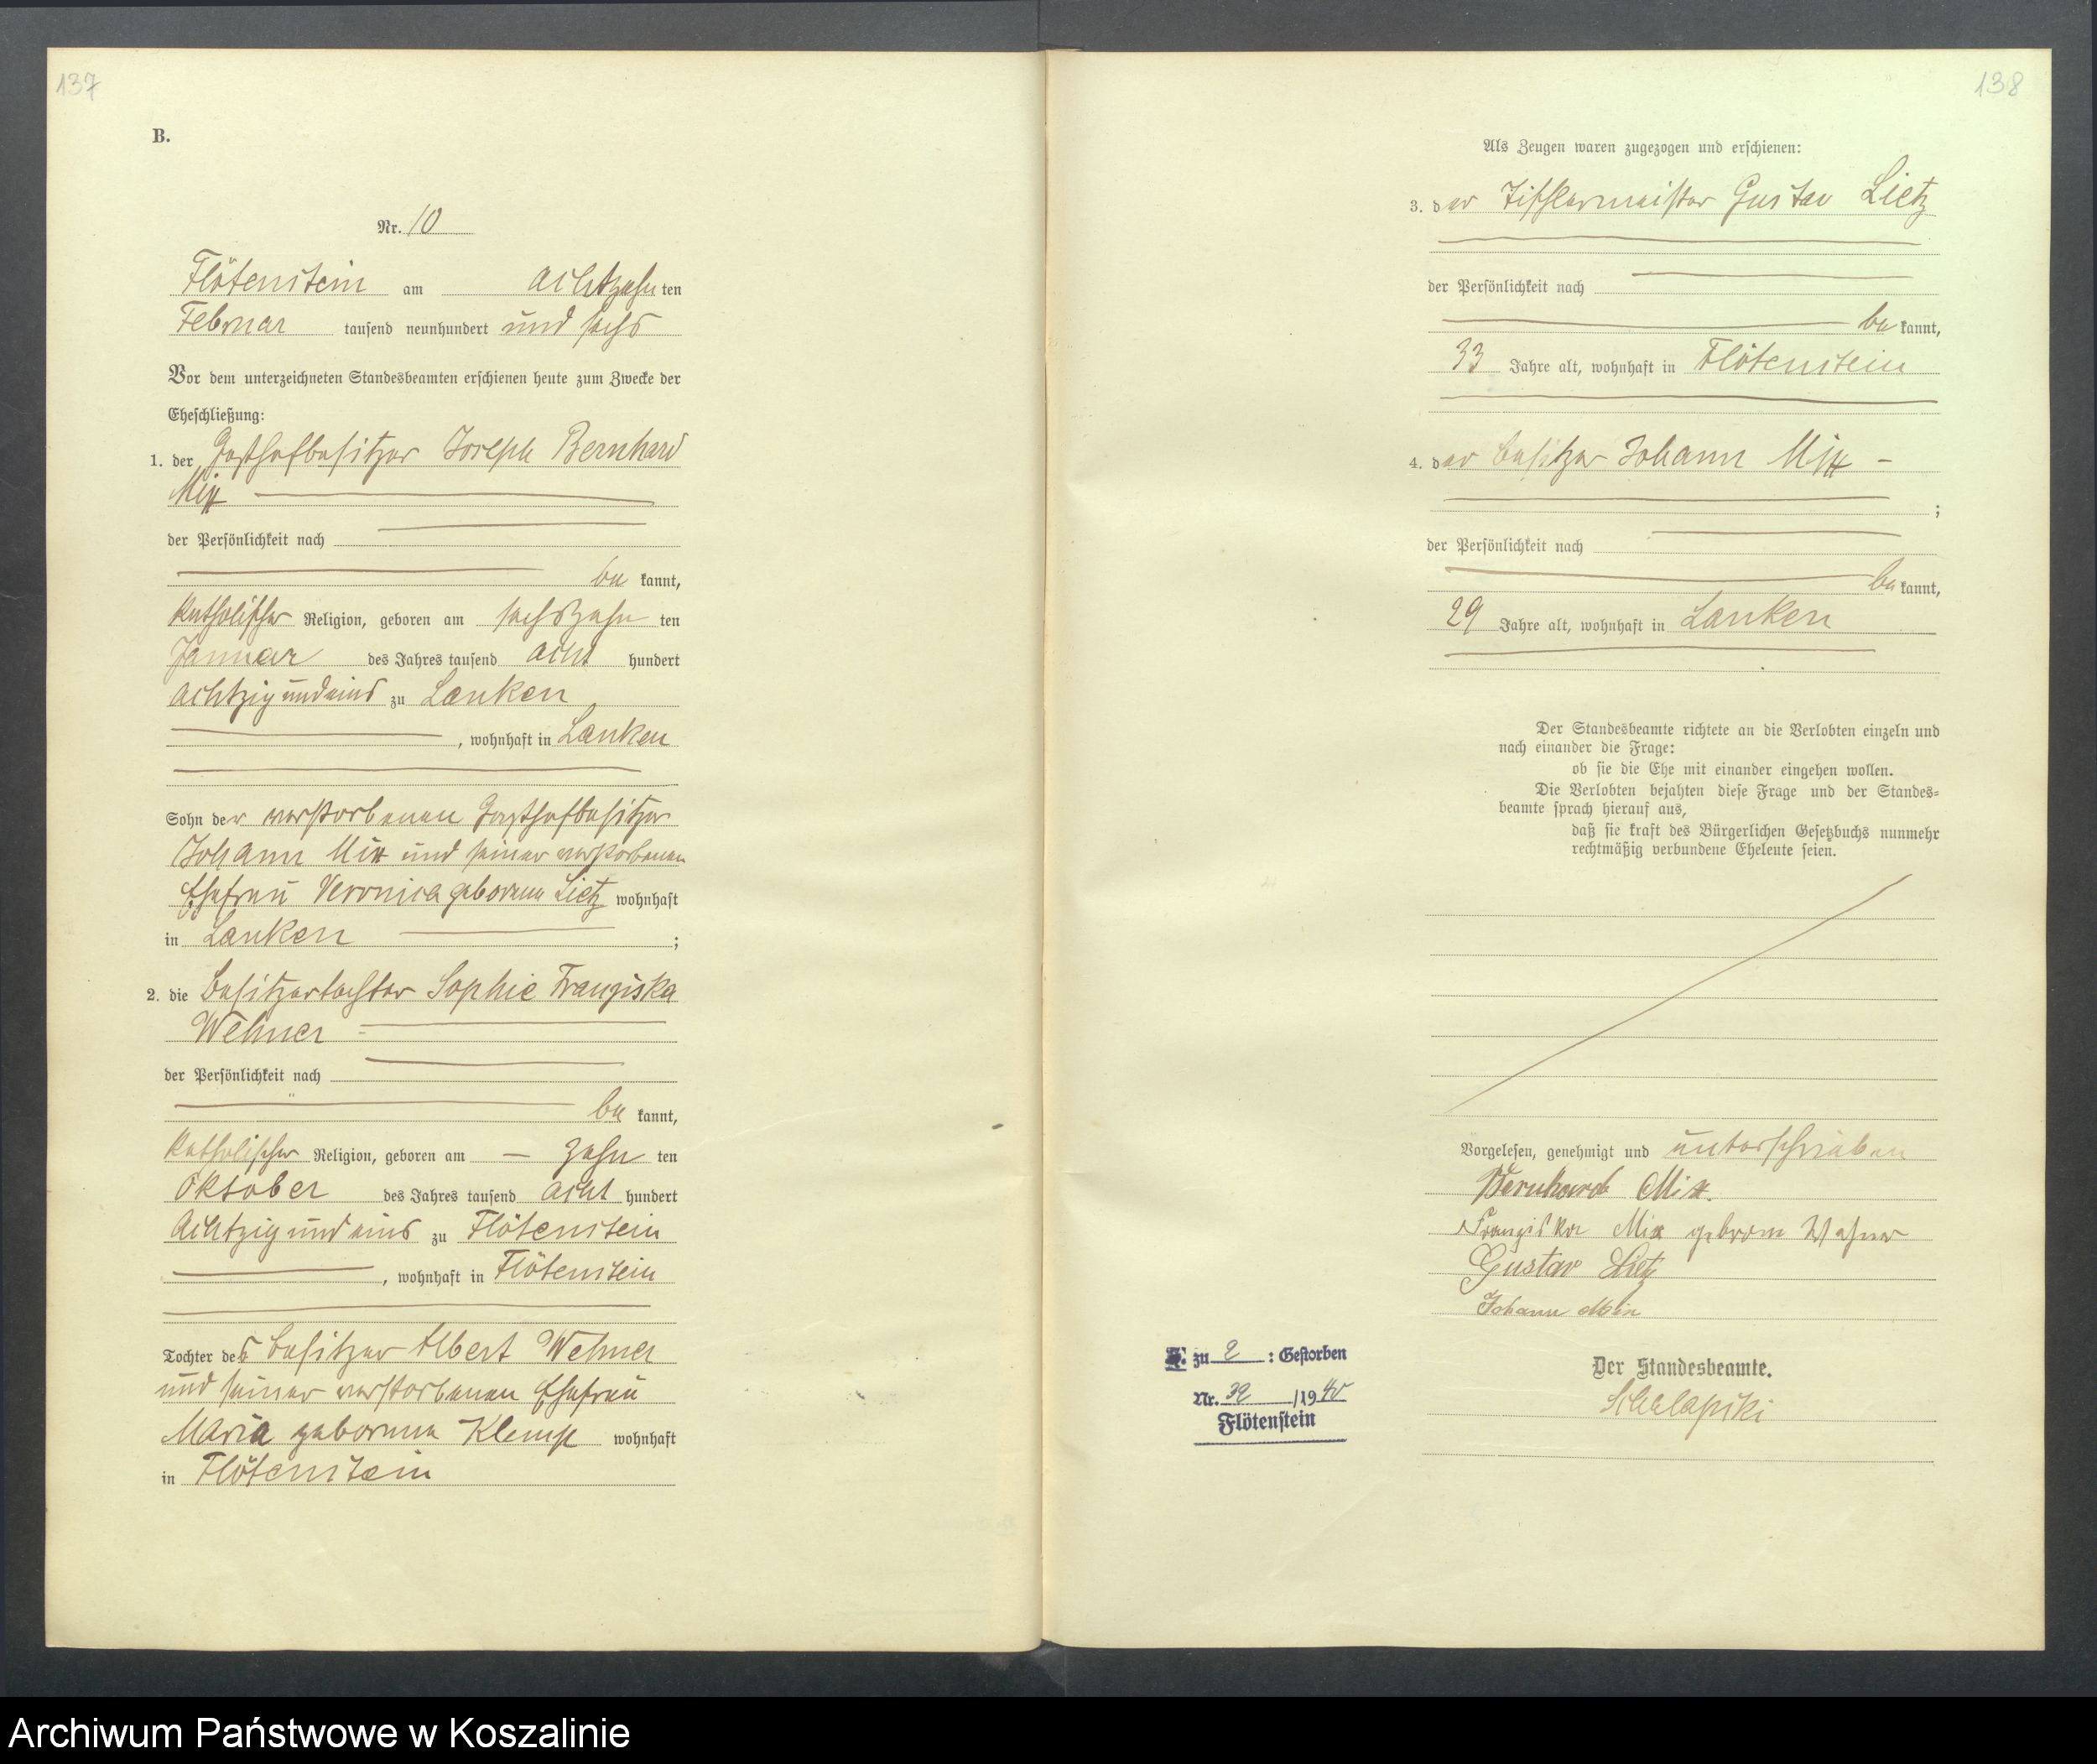 137
B.
Nr. 10
Flötenstein am achtzehnten
Februar tausend neunhundert und sechs
Vor dem unterzeichneten Standesbeamten erschienen heute zum Zwecke der
Eheschließung:
1. der Gasthofbesitzer Joseph Bernhard
Mix
der Persönlichkeit nach
bekannt,
katholischer Religion, geboren am sechszehnten
Januar des Jahres tausend acht hundert
achtzig und eins zu Lanken
, wohnhaft in Lanken
Sohn der verstorbenen Gasthofbesitzer
Johann Mix und seiner verstorbenen
Ehefrau Veronica geborene Lietz wohnhaft
in Lanken ;
2. die Besitzertochter Sophie Franziska
Wehner
der Persönlichkeit nach
bekannt,
katholischer Religion, geboren am zehnten
Oktober des Jahres tausend acht hundert
achtzig und eins zu Flötenstein
, wohnhaft in Flötenstein
Tochter des Besitzer Albert Wehner
und seiner verstorbenen Ehefrau
Maria geborene Klemp wohnhaft
in Flötenstein
138
Als Zeugen waren zugezogen und erschienen:
3. der Tischlermeister Gustav Lietz
der Persönlichkeit nach
bekannt,
33 Jahre alt, wohnhaft in Flötenstein
4. der Besitzer Johann Mix
;
der Persönlichkeit nach
bekannt,
29 Jahre alt, wohnhaft in Lanken
Der Standesbeamte richtete an die Verlobten einzeln und
nach einander die Frage:
ob sie die Ehe mit einander eingehen wollen.
Die Verlobten bejahten diese Frage und der Standes-
beamte sprach hierauf aus,
daß sie kraft des Bürgerlichen Gesetzbuchs nunmehr
rechtmäßig verbundene Eheleute seien.
Vorgelesen, genehmigt und unterschrieben
Bernhard Mix.
Franziska Mix geborene Wehner
Gustav Lietz
Johann Mix
Der Standesbeamte.
zu 2 : Gestorben
Nr. 32 /1940
Flötenstein
Archiwum Państwowe w Koszalinie